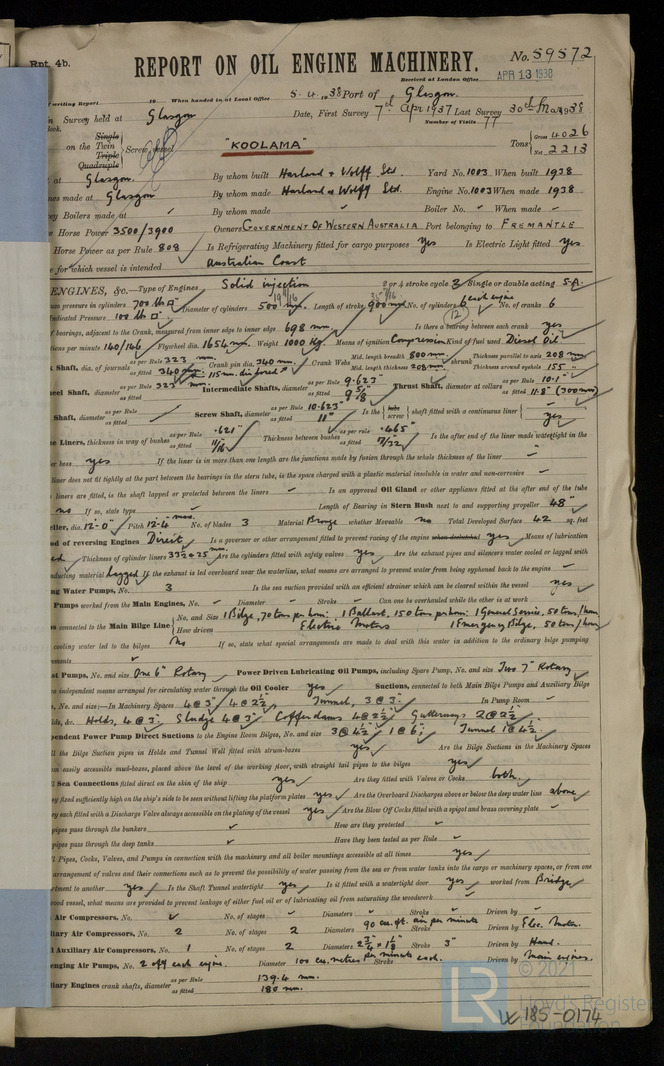 Rpt. 4b.
REPORT ON OIL ENGINE MACHINERY. No. 59572
Received at London Office APR 13 1938
of writing Report 19 When handed in at Local Office 5. 4. 1938 Port of Glasgow.
Survey held at Glasgow Date, First Survey 7th Apr 1937 Last Survey 30th Mar 1938
Number of Visits 77
Single
on the Twin Screw vessel "KOOLAMA" Tons Gross 4026
Triple
Quadruple Net 2213
at Glasgow. By whom built Harland & Wolff Ltd. Yard No. 1003 When built 1938
made at Glasgow By whom made Harland & Wolff Ltd. Engine No. 1003 When made 1938
Boilers made at ✓ By whom made ✓ Boiler No. ✓ When made –
Horse Power 3500/3900 Owners GOVERNMENT OF WESTERN AUSTRALIA Port belonging to FREMANTLE
Horse Power as per Rule 808 Is Refrigerating Machinery fitted for cargo purposes Yes Is Electric Light fitted Yes
for which vessel is intended Australian Coast
ENGINES, &c.—Type of Engines Solid injection 2 or 4 stroke cycle 2 Single or double acting S.A.
pressure in cylinders 700 lb □" Diameter of cylinders 500 mm. Length of stroke 900 mm No. of cylinders 6 each engine No. of cranks 6
Indicated Pressure 100 lb □" (12)
of bearings, adjacent to the Crank, measured from inner edge to inner edge 698 mm Is there a bearing between each crank yes
per minute 140/146 Flywheel dia. 1654 mm. Weight 1000 Kg Means of ignition Compression Kind of fuel used Diesel Oil
Shaft, dia. of journals as per Rule 323 mm. as fitted 340 mm Crank pin dia. 340 mm. Crank Webs Mid. length breadth 800 mm Thickness parallel to axis 208 mm
115 mm. dia. bored Mid. length thickness 208 mm shrunk Thickness around eyehole 155
Shaft, diameter as per Rule 323 mm. as fitted Intermediate Shafts, diameter as per Rule 9.623" as fitted 9 5/8" Thrust Shaft, diameter at collars as per Rule 10.1" as fitted 11.8" (300 mm)
Shaft, diameter as per Rule as fitted Screw Shaft, diameter as per Rule 10.623" as fitted 11" Is the tube screw shaft fitted with a continuous liner yes
Liners, thickness in way of bushes as per Rule .621" as fitted 11/16 Thickness between bushes as per rule .465" as fitted 17/32 Is the after end of the liner made watertight in the
boss yes If the liner is in more than one length are the junctions made by fusion through the whole thickness of the liner –
liner does not fit tightly at the part between the bearings in the stern tube, is the space charged with a plastic material insoluble in water and non-corrosive –
liners are fitted, is the shaft lapped or protected between the liners – Is an approved Oil Gland or other appliance fitted at the after end of the tube
no If so, state type – Length of Bearing in Stern Bush next to and supporting propeller 48"
dia. 12'-0" Pitch 12'-4" No. of blades 3 Material Bronze whether Moveable no Total Developed Surface 42 sq. feet
of reversing Engines Direct Is a governor or other arrangement fitted to prevent racing of the engine when declutched yes Means of lubrication
Thickness of cylinder liners 33½ & 25 mm. Are the cylinders fitted with safety valves yes Are the exhaust pipes and silencers water cooled or lagged with
conducting material lagged If the exhaust is led overboard near the waterline, what means are arranged to prevent water from being syphoned back to the engine –
Water Pumps, No. 3 Is the sea suction provided with an efficient strainer which can be cleared within the vessel yes
Pumps worked from the Main Engines, No. – Diameter – Stroke – Can one be overhauled while the other is at work –
connected to the Main Bilge Line No. and Size 1 Bilge, 70 tons per hour. 1 Ballast, 150 tons per hour. 1 General Service, 50 tons/hour
How driven Electric Motors 1 Emergency Bilge, 50 tons/hour
cooling water led to the bilges no If so, state what special arrangements are made to deal with this water in addition to the ordinary bilge pumping
Pumps, No. and size One 6" Rotary Power Driven Lubricating Oil Pumps, including Spare Pump, No. and size Two 7" Rotary
independent means arranged for circulating water through the Oil Cooler yes Suctions, connected to both Main Bilge Pumps and Auxiliary Bilge
No. and size:—In Machinery Spaces 4 @ 3" 4 @ 2½" Tunnel, 3 @ 3" In Pump Room –
&c. Holds, 4 @ 3" Sludge 4 @ 3" Cofferdams 4 @ 2½" Gutterways 2 @ 2½"
Power Pump Direct Suctions to the Engine Room Bilges, No. and size 3 @ 4½" 1 @ 6" Tunnel 1 @ 4½"
the Bilge Suction pipes in Holds and Tunnel Well fitted with strum-boxes yes Are the Bilge Suctions in the Machinery Spaces
easily accessible mud-boxes, placed above the level of the working floor, with straight tail pipes to the bilges yes
Sea Connections fitted direct on the skin of the ship yes Are they fitted with Valves or Cocks both
fixed sufficiently high on the ship's side to be seen without lifting the platform plates yes Are the Overboard Discharges above or below the deep water line above
each fitted with a Discharge Valve always accessible on the plating of the vessel yes Are the Blow Off Cocks fitted with a spigot and brass covering plate –
pipes pass through the bunkers – How are they protected –
pipes pass through the deep tanks – Have they been tested as per Rule –
Pipes, Cocks, Valves, and Pumps in connection with the machinery and all boiler mountings accessible at all times yes
arrangement of valves and their connections such as to prevent the possibility of water passing from the sea or from water tanks into the cargo or machinery spaces, or from one
to another yes Is the Shaft Tunnel watertight yes Is it fitted with a watertight door yes worked from Bridge
wood vessel, what means are provided to prevent leakage of either fuel oil or of lubricating oil from saturating the woodwork –
Air Compressors, No. ✓ No. of stages – Diameters – Stroke – Driven by –
Air Compressors, No. 2 No. of stages 2 Diameters 90 cu. ft. air per minute Stroke Driven by Elec. Motor.
Auxiliary Air Compressors, No. 1 No. of stages 2 Diameters 2¾" & 1⅛" Stroke 3" Driven by Hand.
Air Pumps, No. 2 off each engine. Diameter 100 cu. metres per minute each. Stroke Driven by Main engines.
Engines crank shafts, diameter as per Rule 139.4 mm.
as fitted 180 mm.
LR © 2021
Lloyd's Register
Foundation
W185-0174